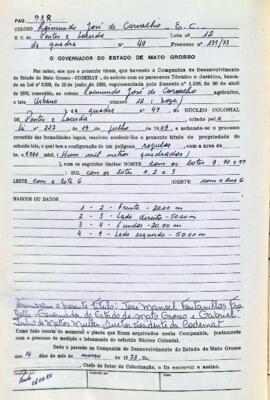 PAG 238
COLONO Raimundo José de Carvalho E.C.
N.C. de Pontes e Lacerda Lote n.º 12
da quadra Nº 49 Processo nº 139/73
O GOVERNADOR DO ESTADO DE MATO GROSSO
Faz saber, aos que o presente virem, que havendo a Companhia de Desenvolvimento
do Estado de Mato Grosso - CODEMAT, de acôrdo com os pareceres Técnico e Jurídico, basea-
agricultor,
Urbano
da quadra nº 49, do NÚCLEO COLONIAL
DE Pontes e Lacerda criado pel a
Lei nº de julho e achando-se o processo
revestido das formalidades legais, resolveu conferir-lhe o presente título de propriedade do
referido lote, o qual tem a configuração de um polígono regular com a área de
(Hum mil metros quadrados)
com os seguintes limites: NORTE com os lotes
SUL com os lotes 1, 2 e 3
LESTE com o lote OESTE com a Rua
MARCOS OU DADOS
1 - 2 - Frente - 20.00 m
2 - 3 - Lado direito - 50.00 m
3 - 4 - Fundos - 20.00 m
4 - 1 - Lado esquerdo - 50.00 m
Assinaram o presente título: José Manoel Fontanillas Fra
gelli - Governador do Estado de Mato Grosso e Gabriel
Julio de Mattos Muller - Diretor Presidente da Codemat
Como tudo consta do memorial e planta que ficam arquivados nesta Companhia, juntamente
com o processo de medição e loteamento do referido Núcleo Colonial.
Dado e passado na Companhia de Desenvolvimento do Estado de Mato Grosso
aos 14 dias do mês de março de 1973. Eu,
Chefe do Setor de Colonização, o fiz escrever e assino.